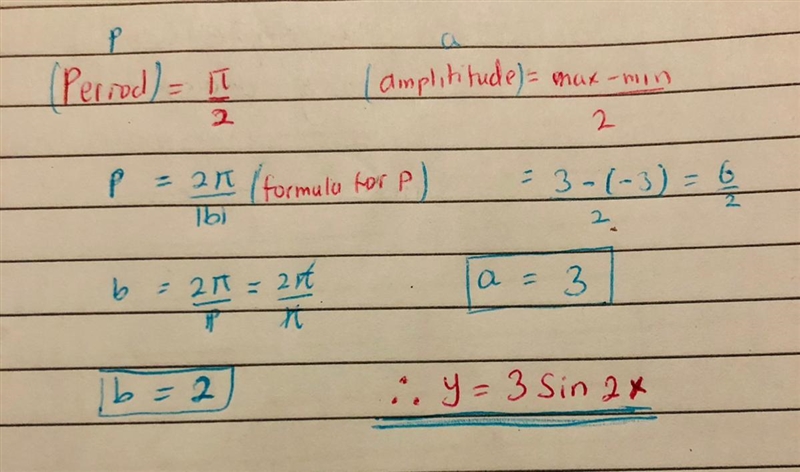 p a
(Period) = π/2 (amplititude) = max - min/2
p = 2π/|b| (formula for p) = 3 - (-3)/2 = 6/2
b = 2π/p = 2π/π a = 3
b = 2 ∴ y = 3 Sin 2x